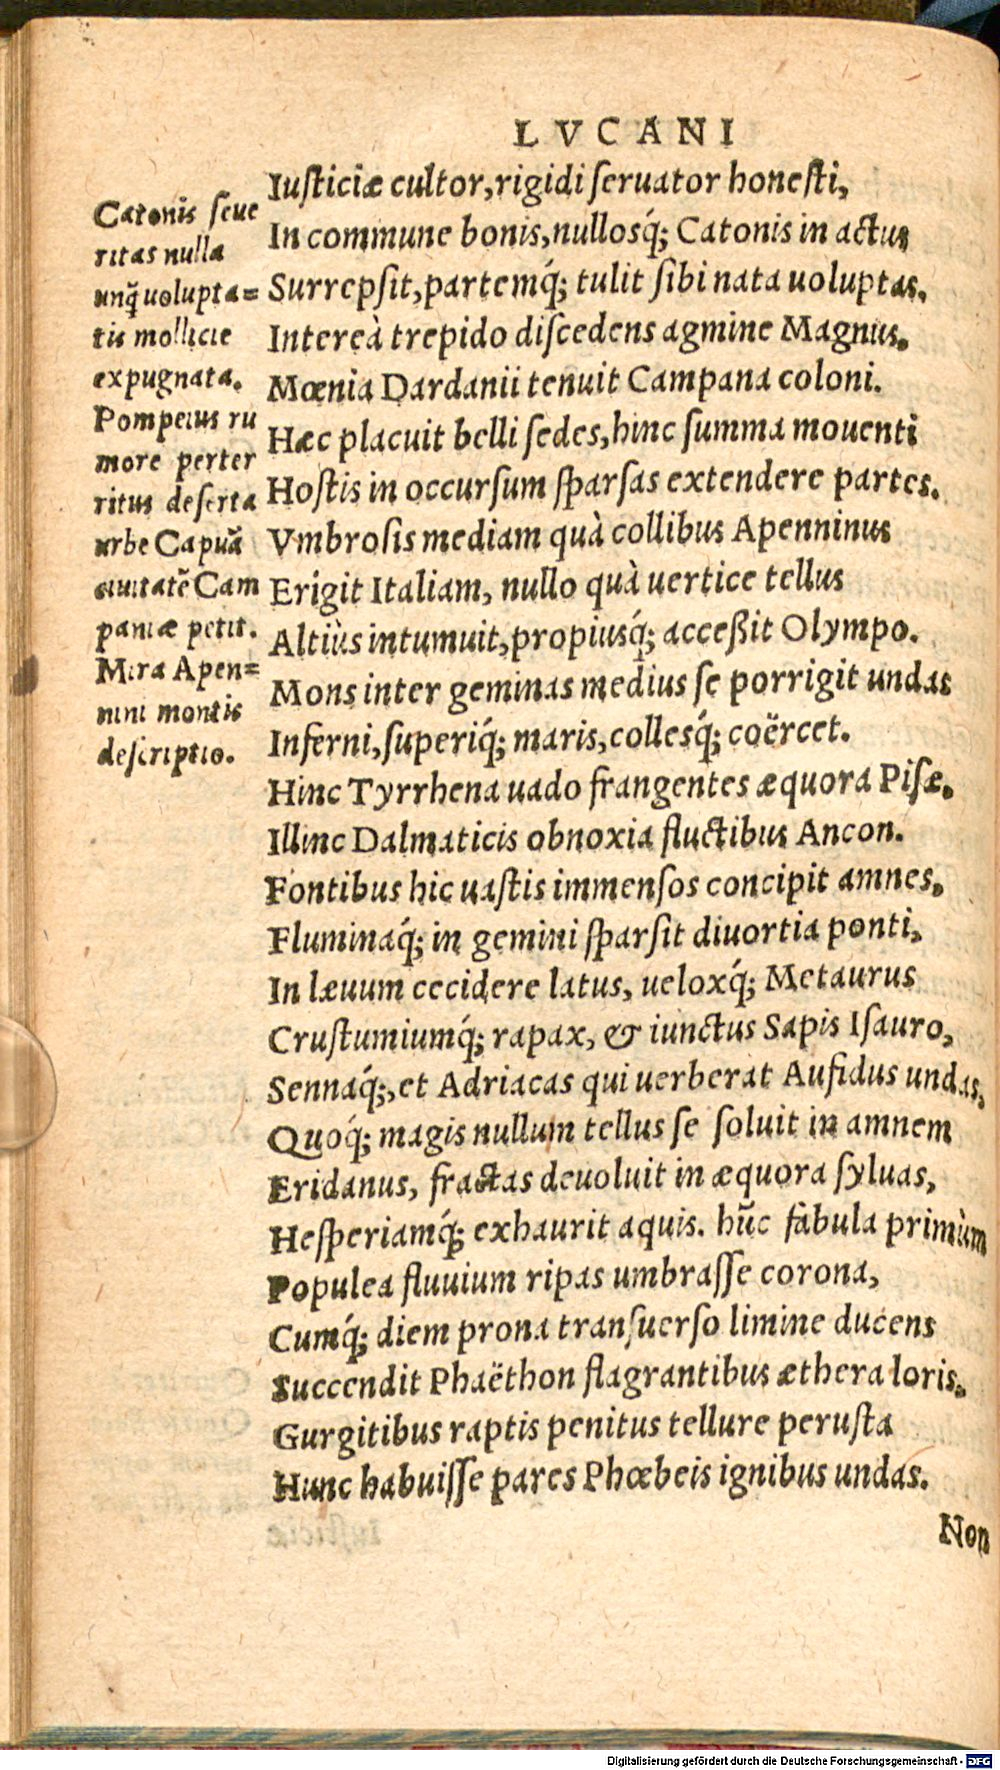 LVCANI
Iusticiæ cultor, rigidi seruator honesti,
In commune bonis, nullosq́; Catonis in actus
Surrepsit, partemq́; tulit sibi nata uoluptas.
Intereà trepido discedens agmine Magnus.
Mœnia Dardanii tenuit Campana coloni.
Hæc placuit belli sedes, hinc summa mouenti
Hostis in occursum sparsas extendere partes.
Vmbrosis mediam quà collibus Apenninus
Erigit Italiam, nullo quà uertice tellus
Altiùs intumuit, propiusq́; acceßit Olympo.
Mons inter geminas medius se porrigit undas
Inferni, superiq́; maris, collesq́; coërcet.
Hinc Tyrrhena uado frangentes æquora Pisæ.
Illinc Dalmaticis obnoxia fluctibus Ancon.
Fontibus hic uastis immensos concipit amnes.
Fluminaq́; in gemini sparsit diuortia ponti,
In læuum cecidere latus, ueloxq́; Metaurus
Crustumiumq́; rapax, & iunctus Sapis Isauro,
Sennaq́;, et Adriacas qui uerberat Aufidus undas,
Quoq́; magis nullum tellus se soluit in amnem
Eridanus, fractas deuoluit in æquora syluas,
Hesperiamq́; exhaurit aquis. hūc fabula primùm
Populea fluuium ripas umbrasse corona,
Cumq́; diem prona transuerso limine ducens
Succendit Phaëthon flagrantibus æthera loris.
Gurgitibus raptis penitus tellure perusta
Hunc habuisse pares Phœbeis ignibus undas.
Non
Catonis seue
ritas nulla
unq̃ uolupta=
tis mollicie
expugnata.
Pompeius ru
more perter
ritus deserta
urbe Capuã
ciuitatẽ Cam
paniæ petit.
Mira Apen=
nini montis
descriptio.
Digitalisierung gefördert durch die Deutsche Forschungsgemeinschaft - DFG